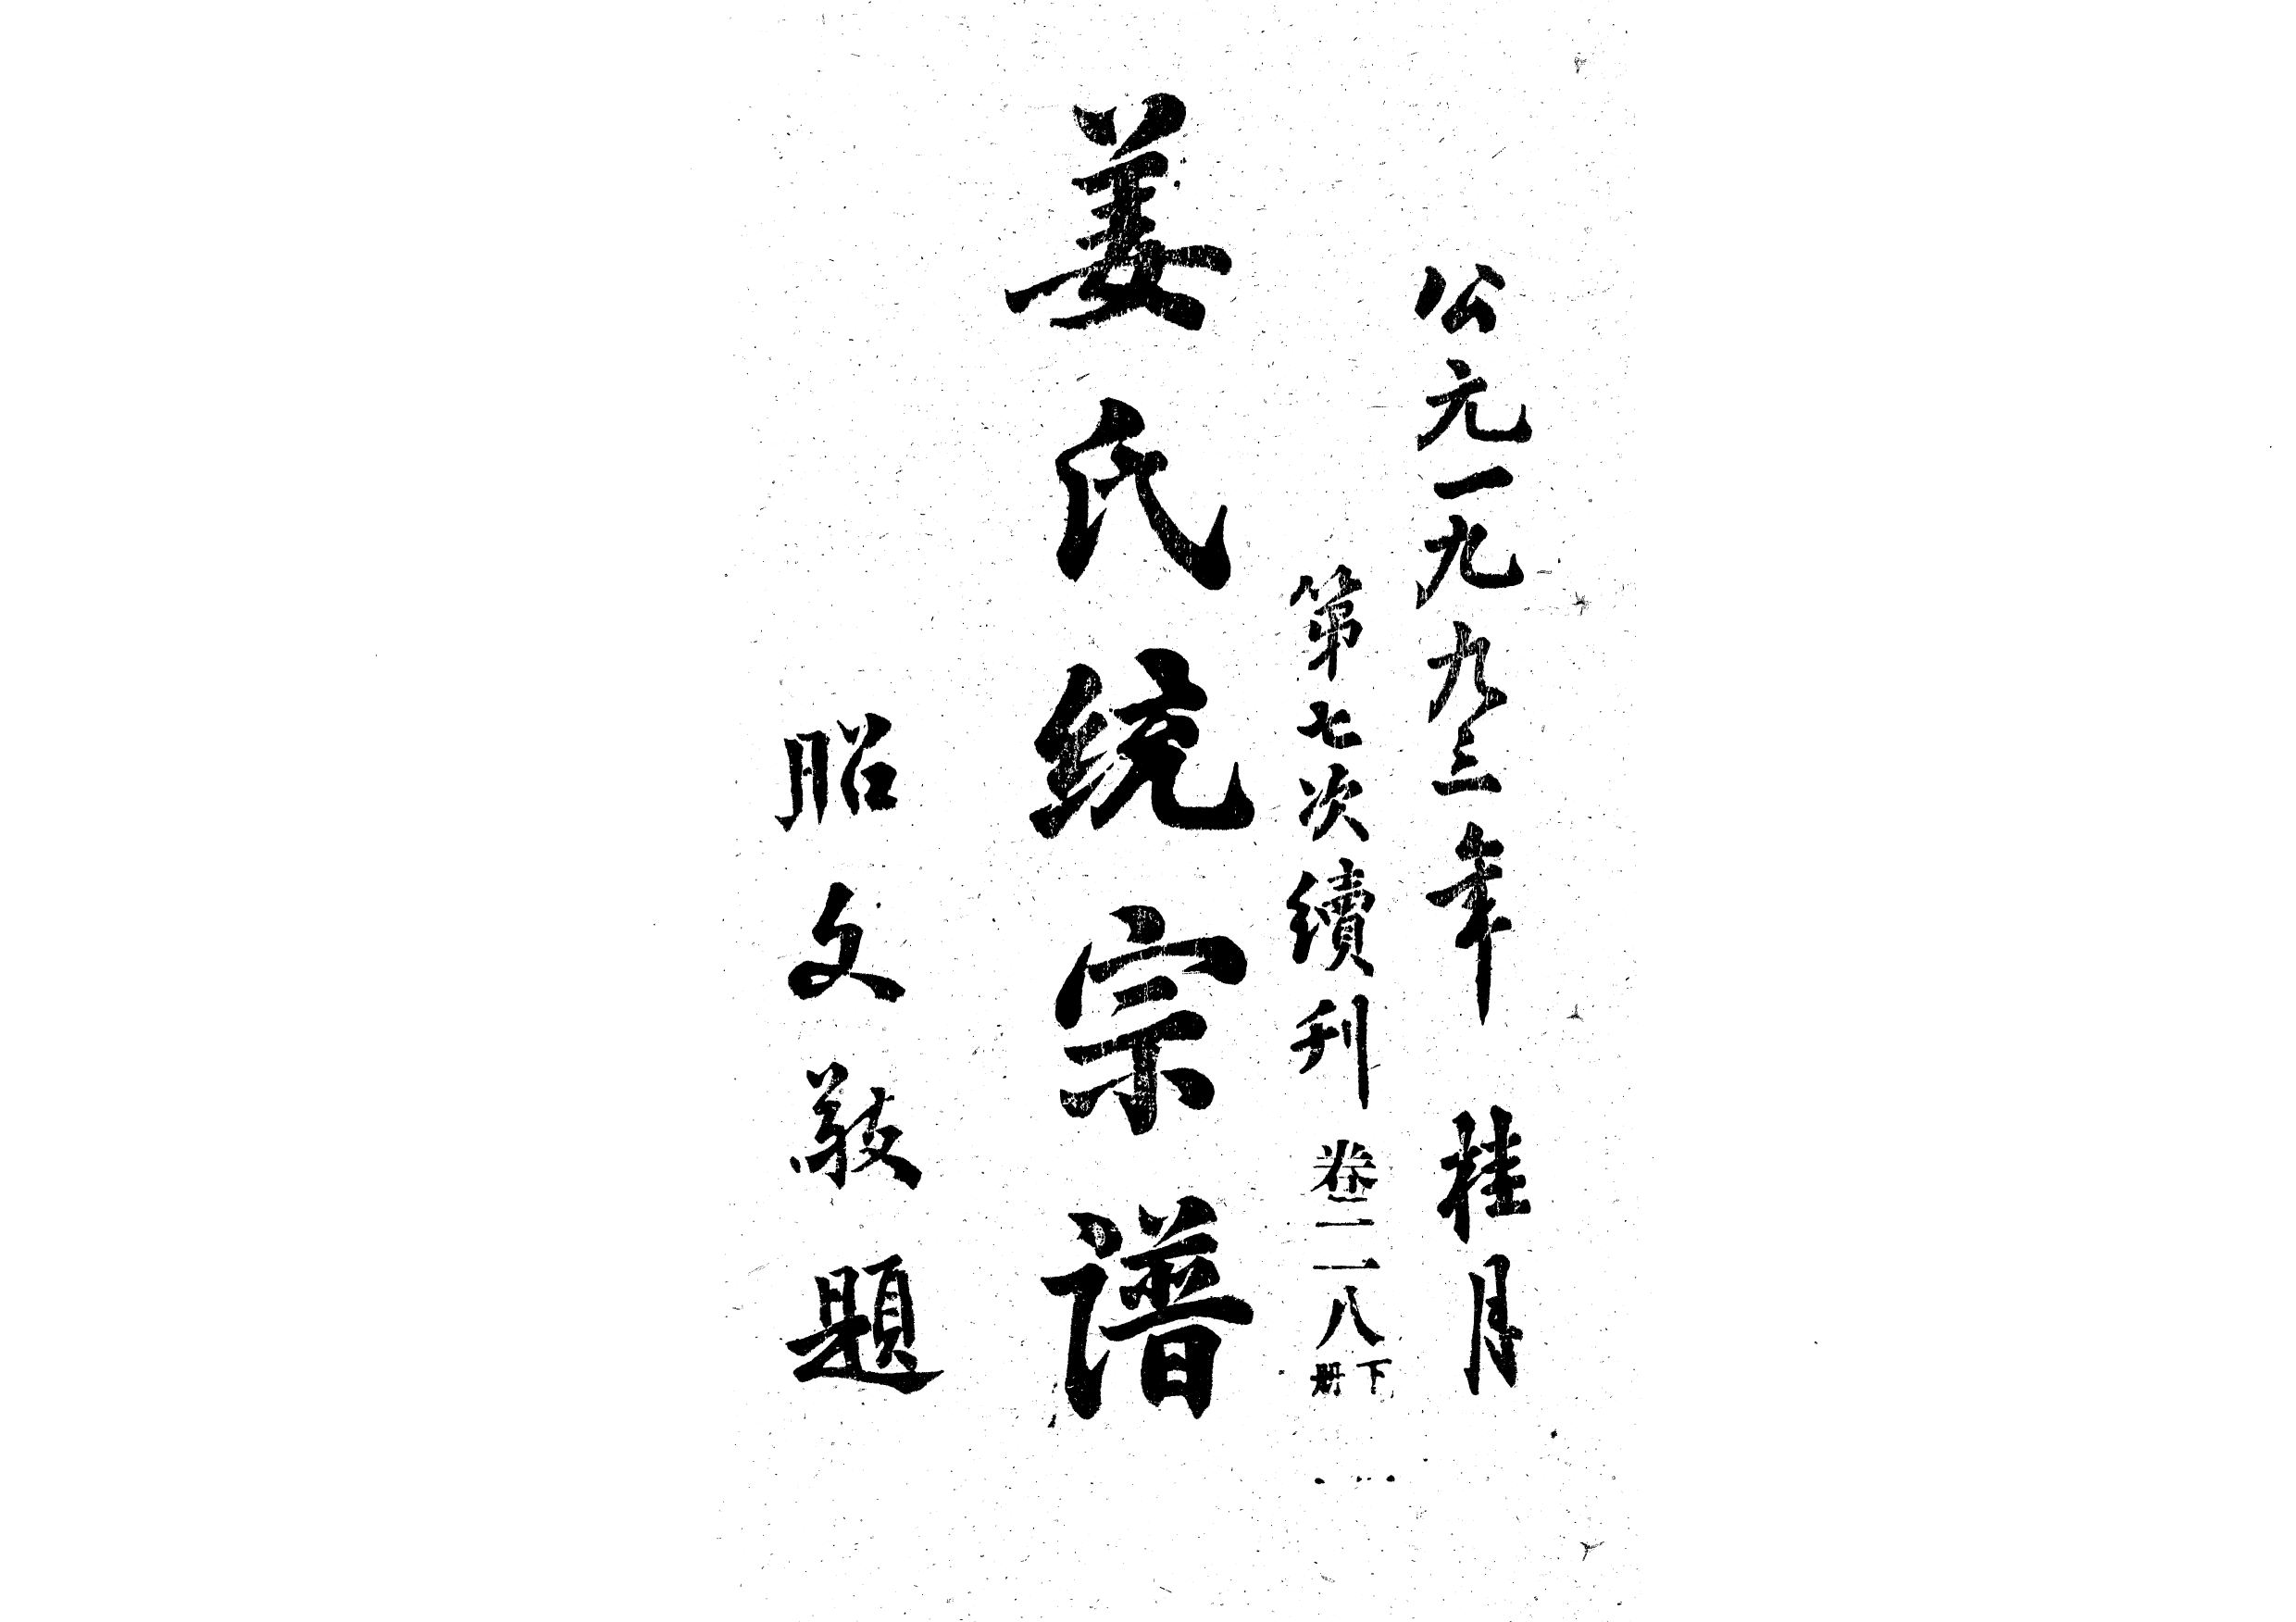 公元一九九三年 桂月
第七次續刊 卷二一八 下册
姜氏统宗谱
昭文敬題